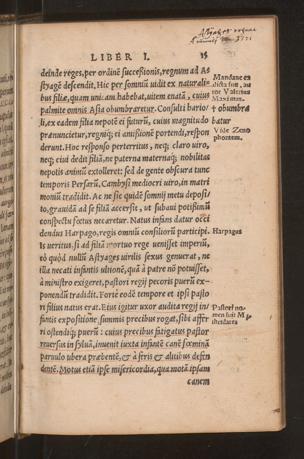 LIBER I. 15
deinde reges, per ordinē successionis, regnum ad As
tyagē descendit. Hic per somnum uidit ex naturali-
bus filiæ, quam unicam habebat, uitem enatā, cuius
palmite omnis Asia obumbraretur. Consulti hario-
li, ex eadem filia nepotē ei futurū, cuius magnitudo
prænuncietur, regniq; ei amissionē portendi, respon
derunt. Hoc responso perterritus, neq; claro uiro,
neq; ciui dedit filiā, ne paterna maternaq; nobilitas
nepotis animū extolleret: sed de gente obscura tunc
temporis Persarū, Cambysi mediocri uiro, in matri
moniū tradidit. Ac ne sic quidē somnij metu deposi-
to, grauidā ad se filiā accersit, ut subaui potissimū
conspectu fœtus necaretur. Natus infans datur occi
dendus Harpago, regis omniū consiliorū participi.
Is ueritus, si ad filiā mortuo rege uenisset imperiū,
eò quòd nullū Astyages uirilis sexus genuerat, ne
illa necati infantis ultionē, quā à patre nō potuisset,
à ministro exigeret, pastori regij pecoris puerū ex-
ponendū tradidit. Fortè eodē tempore et ipsi pasto
ri filius natus erat. Eius igitur uxor audita regij in-
fantis expositione, summis precibus rogat, sibi affer
ri ostendiq; puerū: cuius precibus fatigatus pastor
reuersus in syluā, inuenit iuxta infantē canē fœminā
paruulo ubera præbentē, & à feris & alitibus defen
dentē. Motus etiā ipse misericordia, qua motā ipsam
canem
Mandane ex
dicta fuit, au
tor Valerius
Maximus.
† obumbra
batur
Vide Zeno
phontem.
Harpagus
Pastori no-
men fuit M
thridates